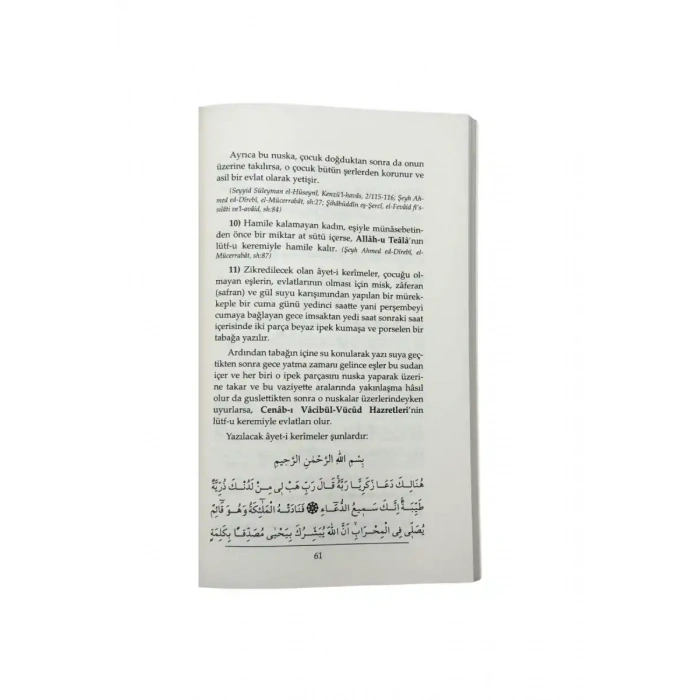 Ayrıca bu nuska, çocuk doğduktan sonra da onun
üzerine takılırsa, o çocuk bütün şerlerden korunur ve
asil bir evlat olarak yetişir.
(Seyyid Süleyman el-Hüseynî, Kenzü'l-havâs, 2/115-116; Şeyh Ah-
med ed-Dîrebî, el-Mücerrabât, sh:27; Şihâbüddîn eş-Şercî, el-Fevâid fi's-
salâti ve'l-avâid, sh:84)
10) Hamile kalamayan kadın, eşiyle münâsebetin-
den önce bir miktar at sütü içerse, Allâh-u Teâlâ'nın
lütf-u keremiyle hamile kalır. (Şeyh Ahmed ed-Dîrebî, el-
Mücerrabât, sh:87)
11) Zikredilecek olan âyet-i kerîmeler, çocuğu ol-
mayan eşlerin, evlatlarının olması için misk, zâferan
(safran) ve gül suyu karışımından yapılan bir mürek-
keple bir cuma günü yedinci saatte yani perşembeyi
cumaya bağlayan gece imsaktan yedi saat sonraki saat
içerisinde iki parça beyaz ipek kumaşa ve porselen bir
tabağa yazılır.
Ardından tabağın içine su konularak yazı suya geç-
tikten sonra gece yatma zamanı gelince eşler bu sudan
içer ve her biri o ipek parçasını nuska yaparak üzeri-
ne takar ve bu vaziyette aralarında yakınlaşma hâsıl
olur da guslettikten sonra o nuskalar üzerlerindeyken
uyurlarsa, Cenâb-ı Vâcibül-Vücûd Hazretleri'nin
lütf-u keremiyle evlatları olur.
Yazılacak âyet-i kerîmeler şunlardır:
بِسْمِ اللّٰهِ الرَّحْمٰنِ الرَّحِيمِ
هُنَالِكَ دَعَا زَكَرِيَّا رَبَّهُ قَالَ رَبِّ هَبْ لِى مِنْ لَدُنْكَ ذُرِّيَّةً
طَيِّبَةً اِنَّكَ سَمِيعُ الدُّعَاءِ ۞ فَنَادَتْهُ الْمَلٰٓئِكَةُ وَهُوَ قَٓائِمٌ
يُصَلِّى فِى الْمِحْرَابِ اَنَّ اللّٰهَ يُبَشِّرُكَ بِيَحْيٰى مُصَدِّقًا بِكَلِمَةٍ
61